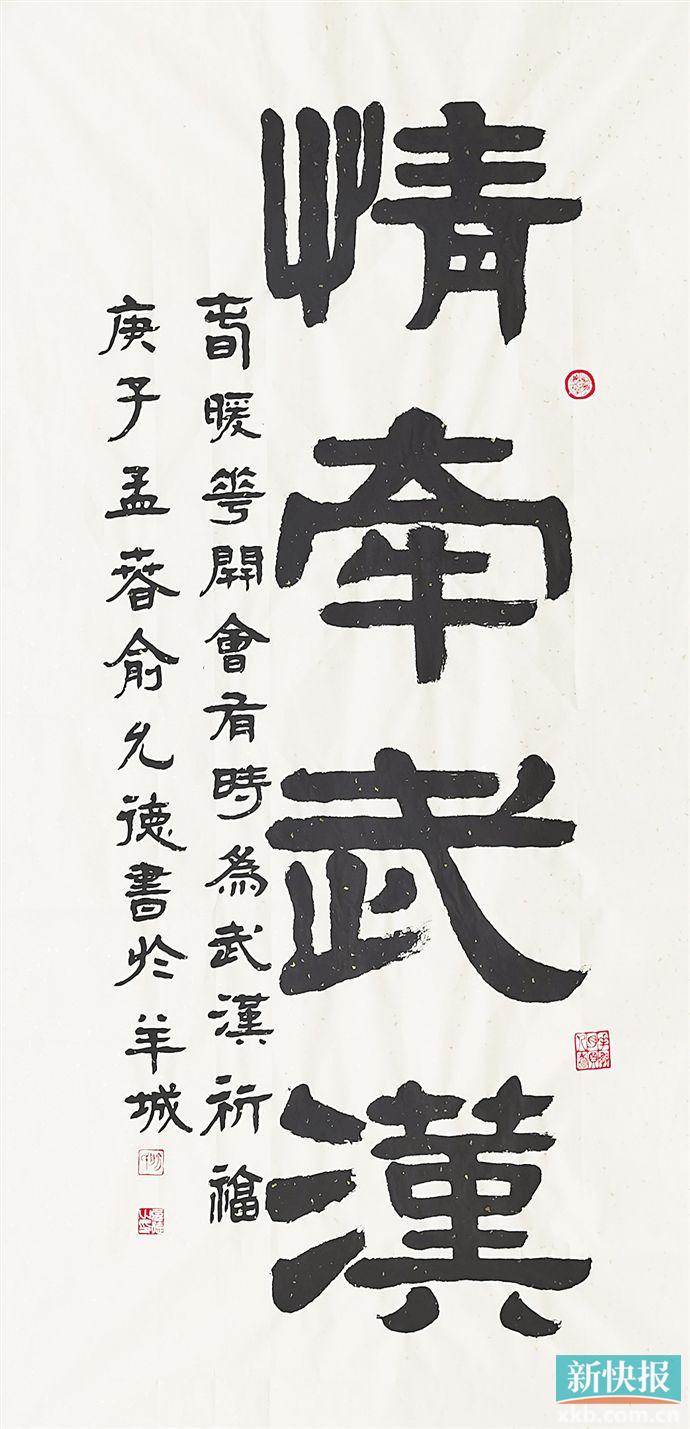 情牽武漢
春暖華開會有時為武漢祈福
庚子孟春俞允德書於羊城
新快报
xkb.com.cn